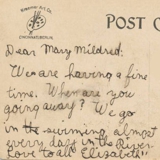 Kraemer Art Co.
CINCINNATI, BERLIN
POST C
Dear Mary Mildred:
We are having a fine
time. When are you
going away? We go
in the swimming almost
every day in the River.
Love to all Elizabeth